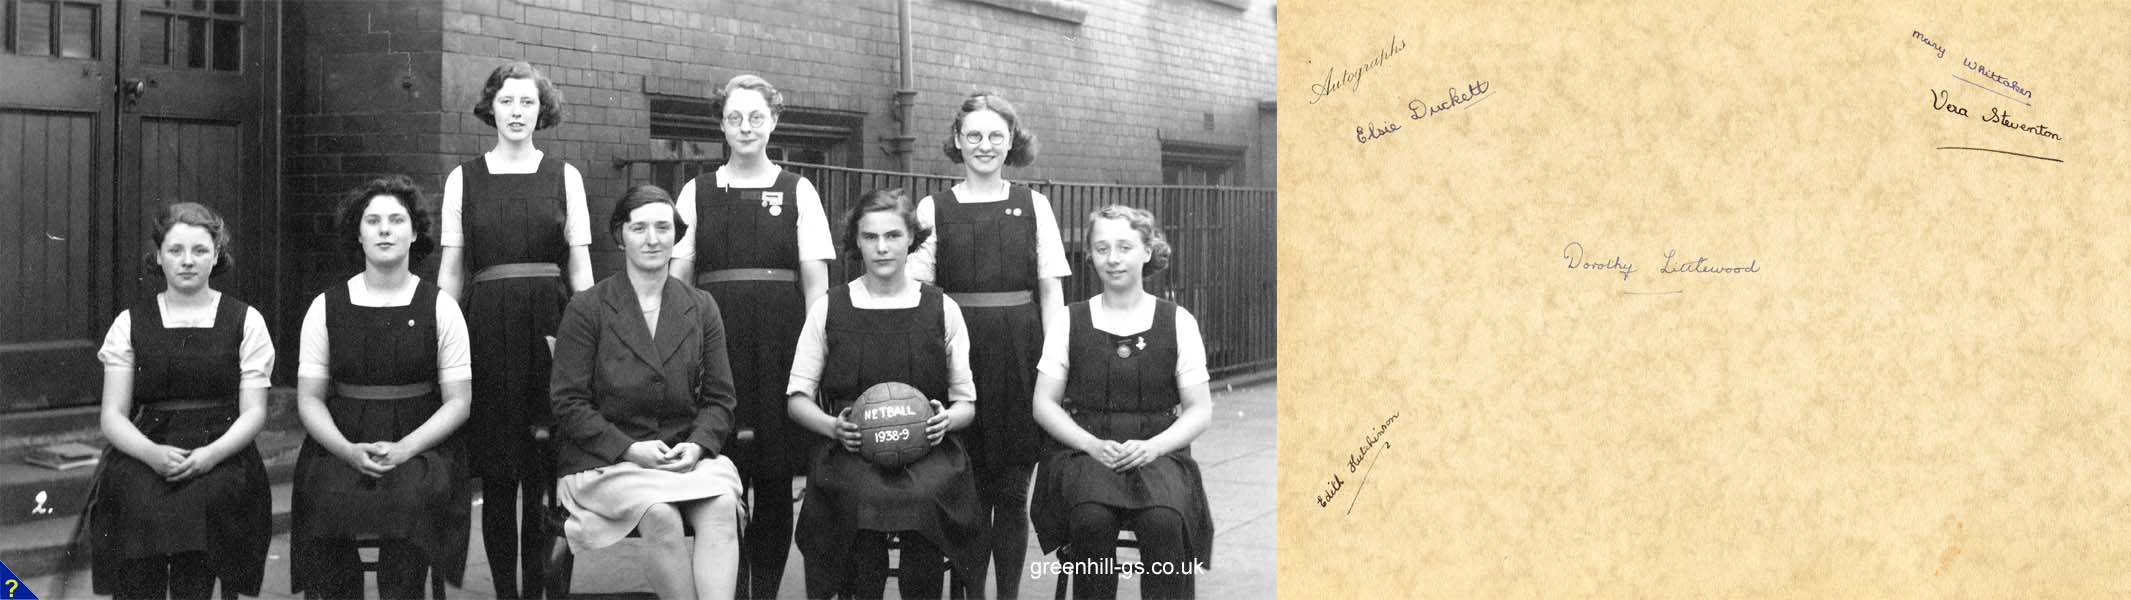 NETBALL
1938-9
2.
?
greenhill-gs.co.uk
Autographs
Elsie Duckett
Mary Whittaker
Vera Steventon
Dorothy Littlewood
Edith Hutchinson